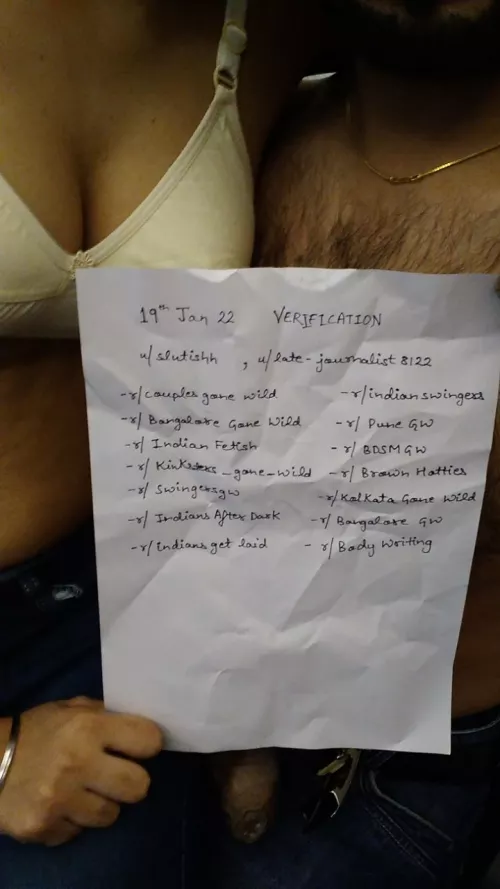 19th Jan 22 VERIFICATION
u/slutishh , u/late-journalist 8122
-r/couples gone wild
-r/indian swingers
-r/Bangalore Gone Wild
-r/Pune GW
-r/Indian Fetish
-r/BDSM GW
-r/Kinksters_gone_wild
-r/Brown Hotties
-r/Swingersgw
-r/Kolkata Gone Wild
-r/Indians After Dark
-r/Bangalore GW
-r/indians get laid
- r/Body Writing